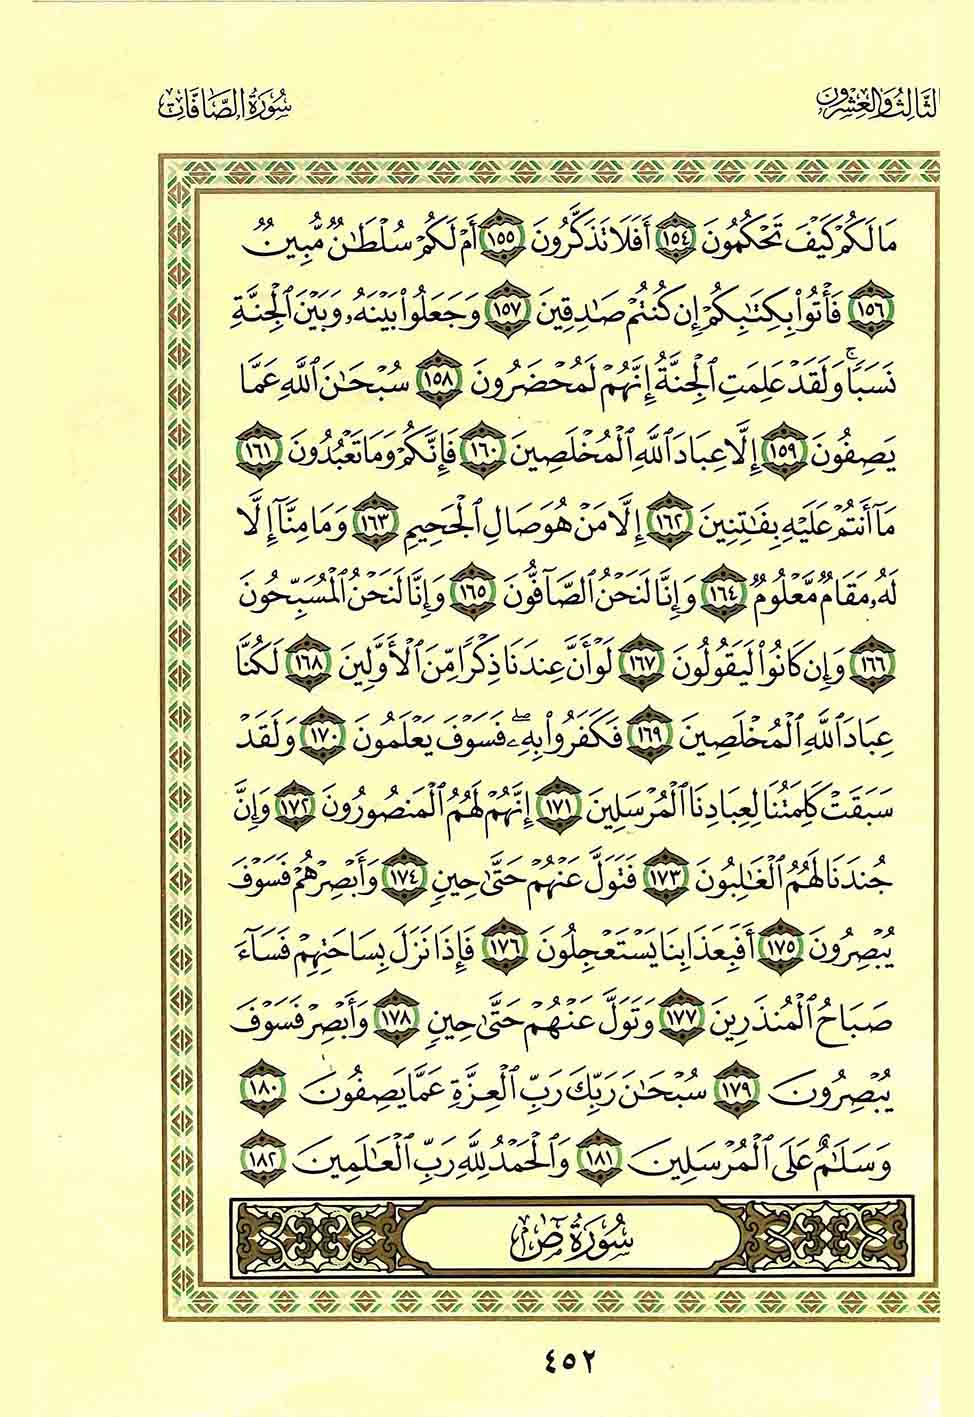 الثالث والعشرون
سورة الصافات
مَا لَكُمْ كَيْفَ تَحْكُمُونَ ١٥٤ أَفَلَا تَذَكَّرُونَ ١٥٥ أَمْ لَكُمْ سُلْطَٰنٌ مُّبِينٌ
١٥٦ فَأْتُوا۟ بِكِتَٰبِكُمْ إِن كُنتُمْ صَٰدِقِينَ ١٥٧ وَجَعَلُوا۟ بَيْنَهُۥ وَبَيْنَ ٱلْجِنَّةِ
نَسَبًا ۚ وَلَقَدْ عَلِمَتِ ٱلْجِنَّةُ إِنَّهُمْ لَمُحْضَرُونَ ١٥٨ سُبْحَٰنَ ٱللَّهِ عَمَّا
يَصِفُونَ ١٥٩ إِلَّا عِبَادَ ٱللَّهِ ٱلْمُخْلَصِينَ ١٦٠ فَإِنَّكُمْ وَمَا تَعْبُدُونَ ١٦١
مَآ أَنتُمْ عَلَيْهِ بِفَٰتِنِينَ ١٦٢ إِلَّا مَنْ هُوَ صَالِ ٱلْجَحِيمِ ١٦٣ وَمَا مِنَّآ إِلَّا
لَهُۥ مَقَامٌ مَّعْلُومٌ ١٦٤ وَإِنَّا لَنَحْنُ ٱلصَّآفُّونَ ١٦٥ وَإِنَّا لَنَحْنُ ٱلْمُسَبِّحُونَ
١٦٦ وَإِن كَانُوا۟ لَيَقُولُونَ ١٦٧ لَوْ أَنَّ عِندَنَا ذِكْرًا مِّنَ ٱلْأَوَّلِينَ ١٦٨ لَكُنَّا
عِبَادَ ٱللَّهِ ٱلْمُخْلَصِينَ ١٦٩ فَكَفَرُوا۟ بِهِۦ ۖ فَسَوْفَ يَعْلَمُونَ ١٧٠ وَلَقَدْ
سَبَقَتْ كَلِمَتُنَا لِعِبَادِنَا ٱلْمُرْسَلِينَ ١٧١ إِنَّهُمْ لَهُمُ ٱلْمَنصُورُونَ ١٧٢ وَإِنَّ
جُندَنَا لَهُمُ ٱلْغَٰلِبُونَ ١٧٣ فَتَوَلَّ عَنْهُمْ حَتَّىٰ حِينٍ ١٧٤ وَأَبْصِرْهُمْ فَسَوْفَ
يُبْصِرُونَ ١٧٥ أَفَبِعَذَابِنَا يَسْتَعْجِلُونَ ١٧٦ فَإِذَا نَزَلَ بِسَاحَتِهِمْ فَسَآءَ
صَبَاحُ ٱلْمُنذَرِينَ ١٧٧ وَتَوَلَّ عَنْهُمْ حَتَّىٰ حِينٍ ١٧٨ وَأَبْصِرْ فَسَوْفَ
يُبْصِرُونَ ١٧٩ سُبْحَٰنَ رَبِّكَ رَبِّ ٱلْعِزَّةِ عَمَّا يَصِفُونَ ١٨٠
وَسَلَٰمٌ عَلَى ٱلْمُرْسَلِينَ ١٨١ وَٱلْحَمْدُ لِلَّهِ رَبِّ ٱلْعَٰلَمِينَ ١٨٢
سُورَةُ صٓ
٤٥٢